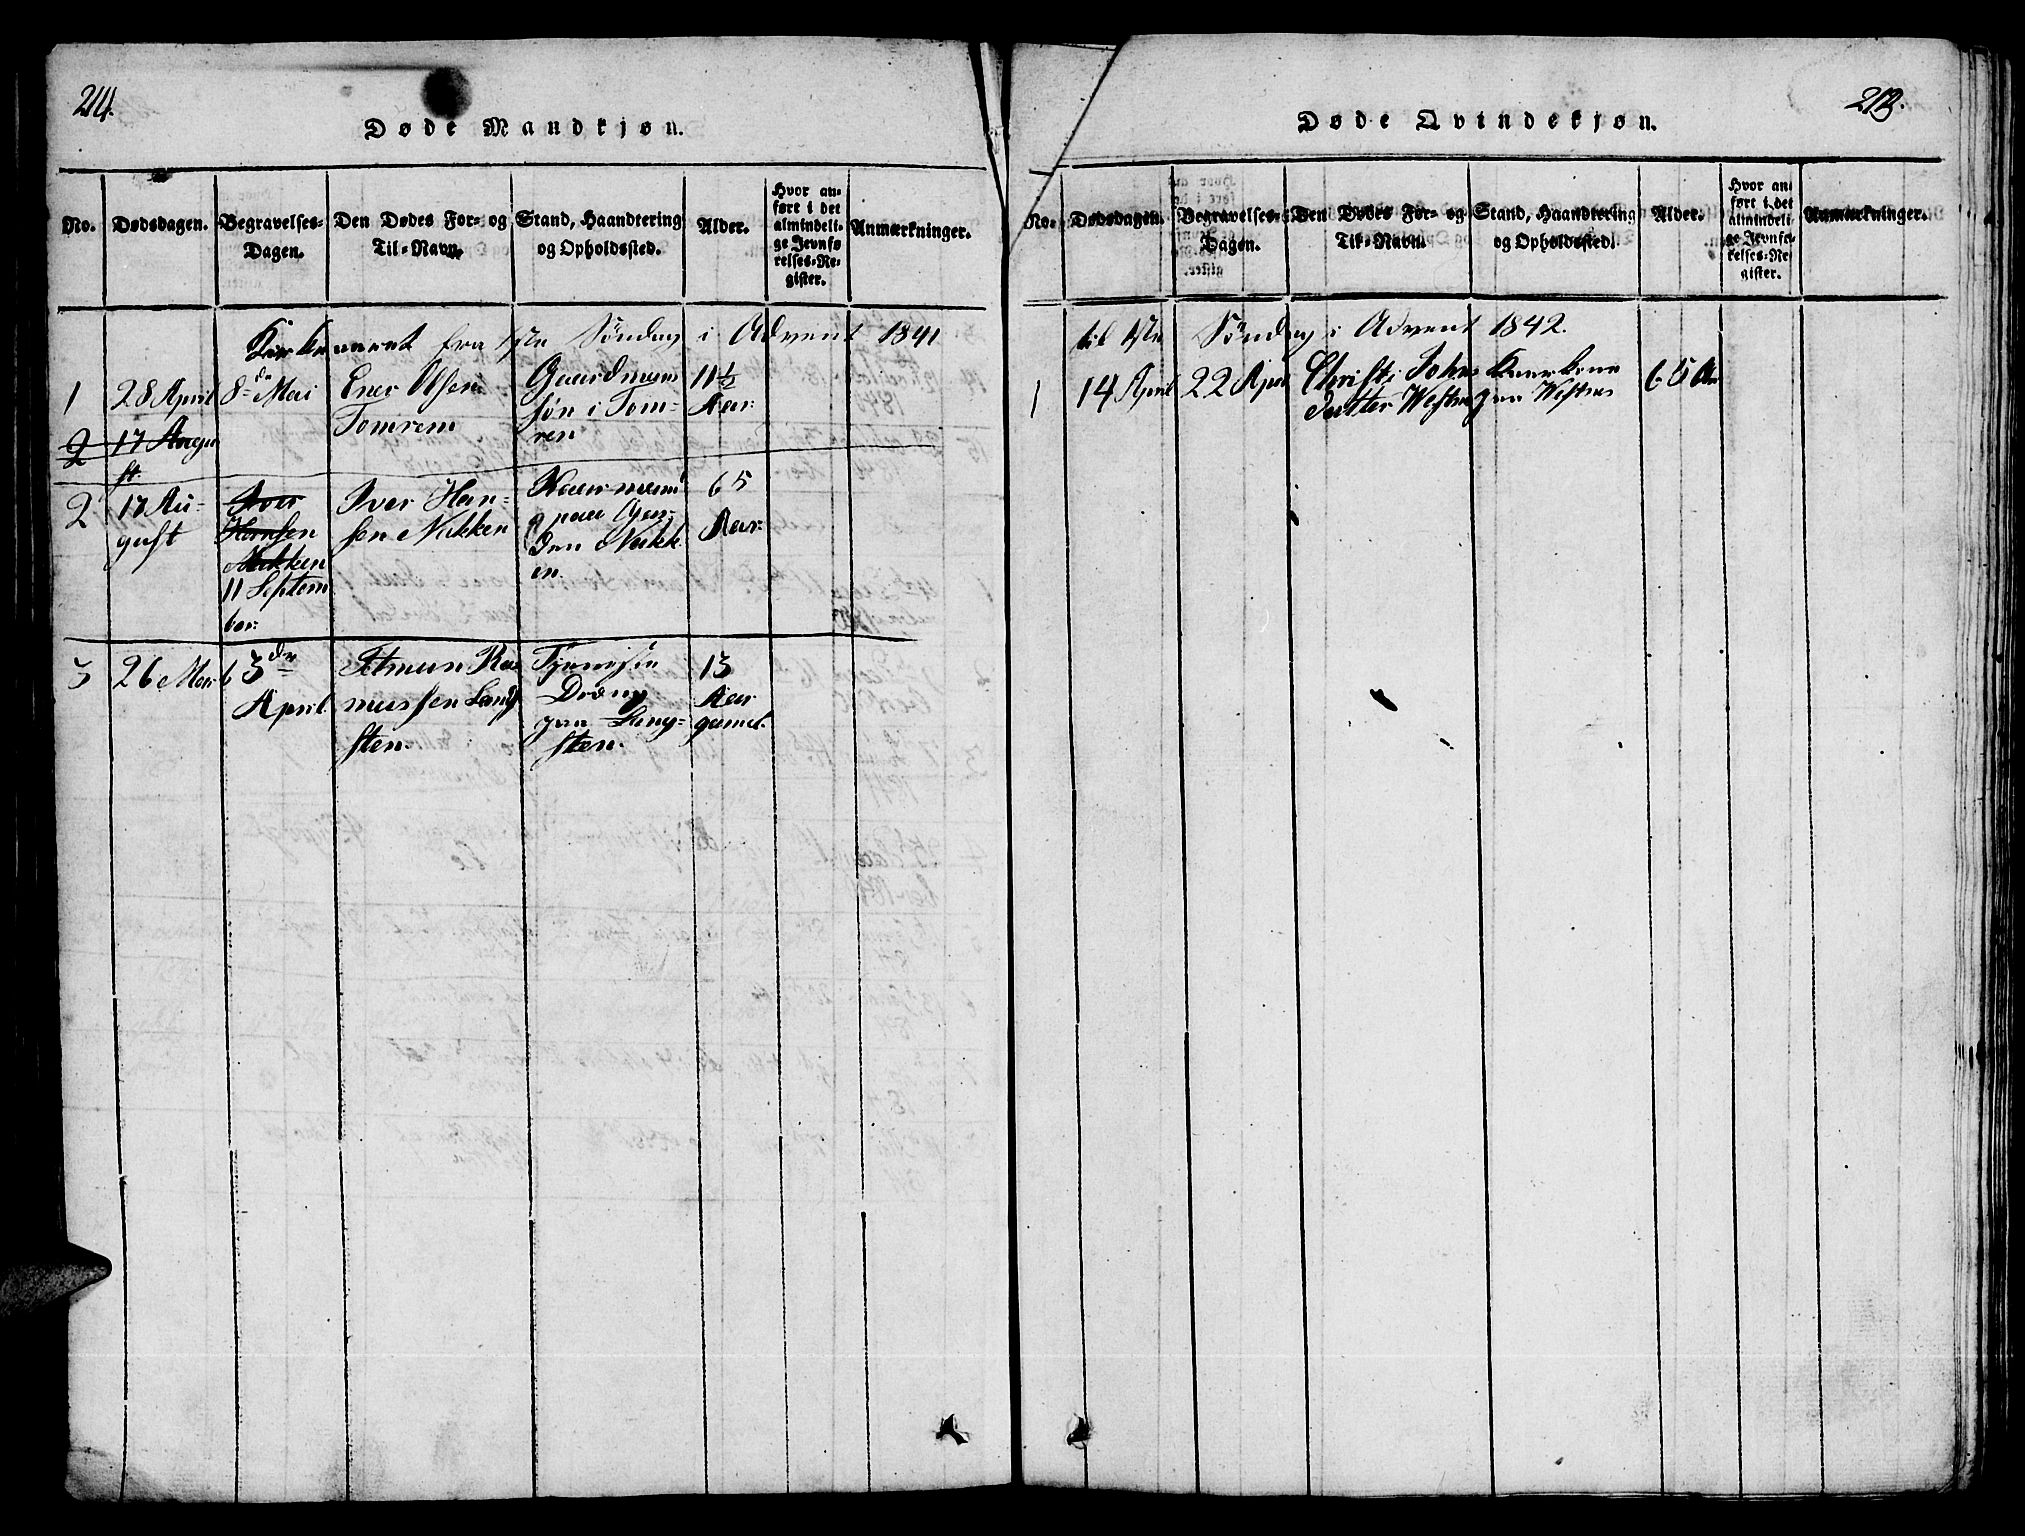 214.
Døde Mandkjøn.
No.
Dødsdagen.
Begravelses-
Dagen.
Den Dødes For- og
Til-Navn.
Stand, Haandtering
og Opholdssted.
Alder.
Hvor an-
ført i det
almindeli-
ge Jevnfø
relses-Re-
gister.
Anmærkninger.
Kirkeaaret fra 1ste Söndag i Advent 1841
1
28 April
8de Mai
Olsen
Tomrem
Gaardmans
sön i Tom-
ren
11½
Aar:
2
17 Augu
st.
2
17 Au-
gust
Iver
Hansen
Nakken
11 Septem
ber:
Iver Han-
sen Nakken
Kaarmand
paa Gaar-
den Nakk
en.
65
Aar:
3
26 Mars
3de
April
Ra
mussen Lang
sten.
Dræng
paa Lang-
sten.
13
Aar
gamel.
213.
Døde Qvindekjøn.
No.
Dødsdagen.
Begravelses-
Dagen.
Den Dødes For- og
Til-Navn.
Stand, Haandtering
og Opholdssted.
Alder.
Hvor an
ført i det
almindeli-
ge Jevnfø-
relses-Re
gister.
Anmærkninger.
til 1ste Söndag i Advent 1842.
1
14 April
22 April
Christi Johns
Datter Westnes
Kaarkone
paa Westnes
65 Aar